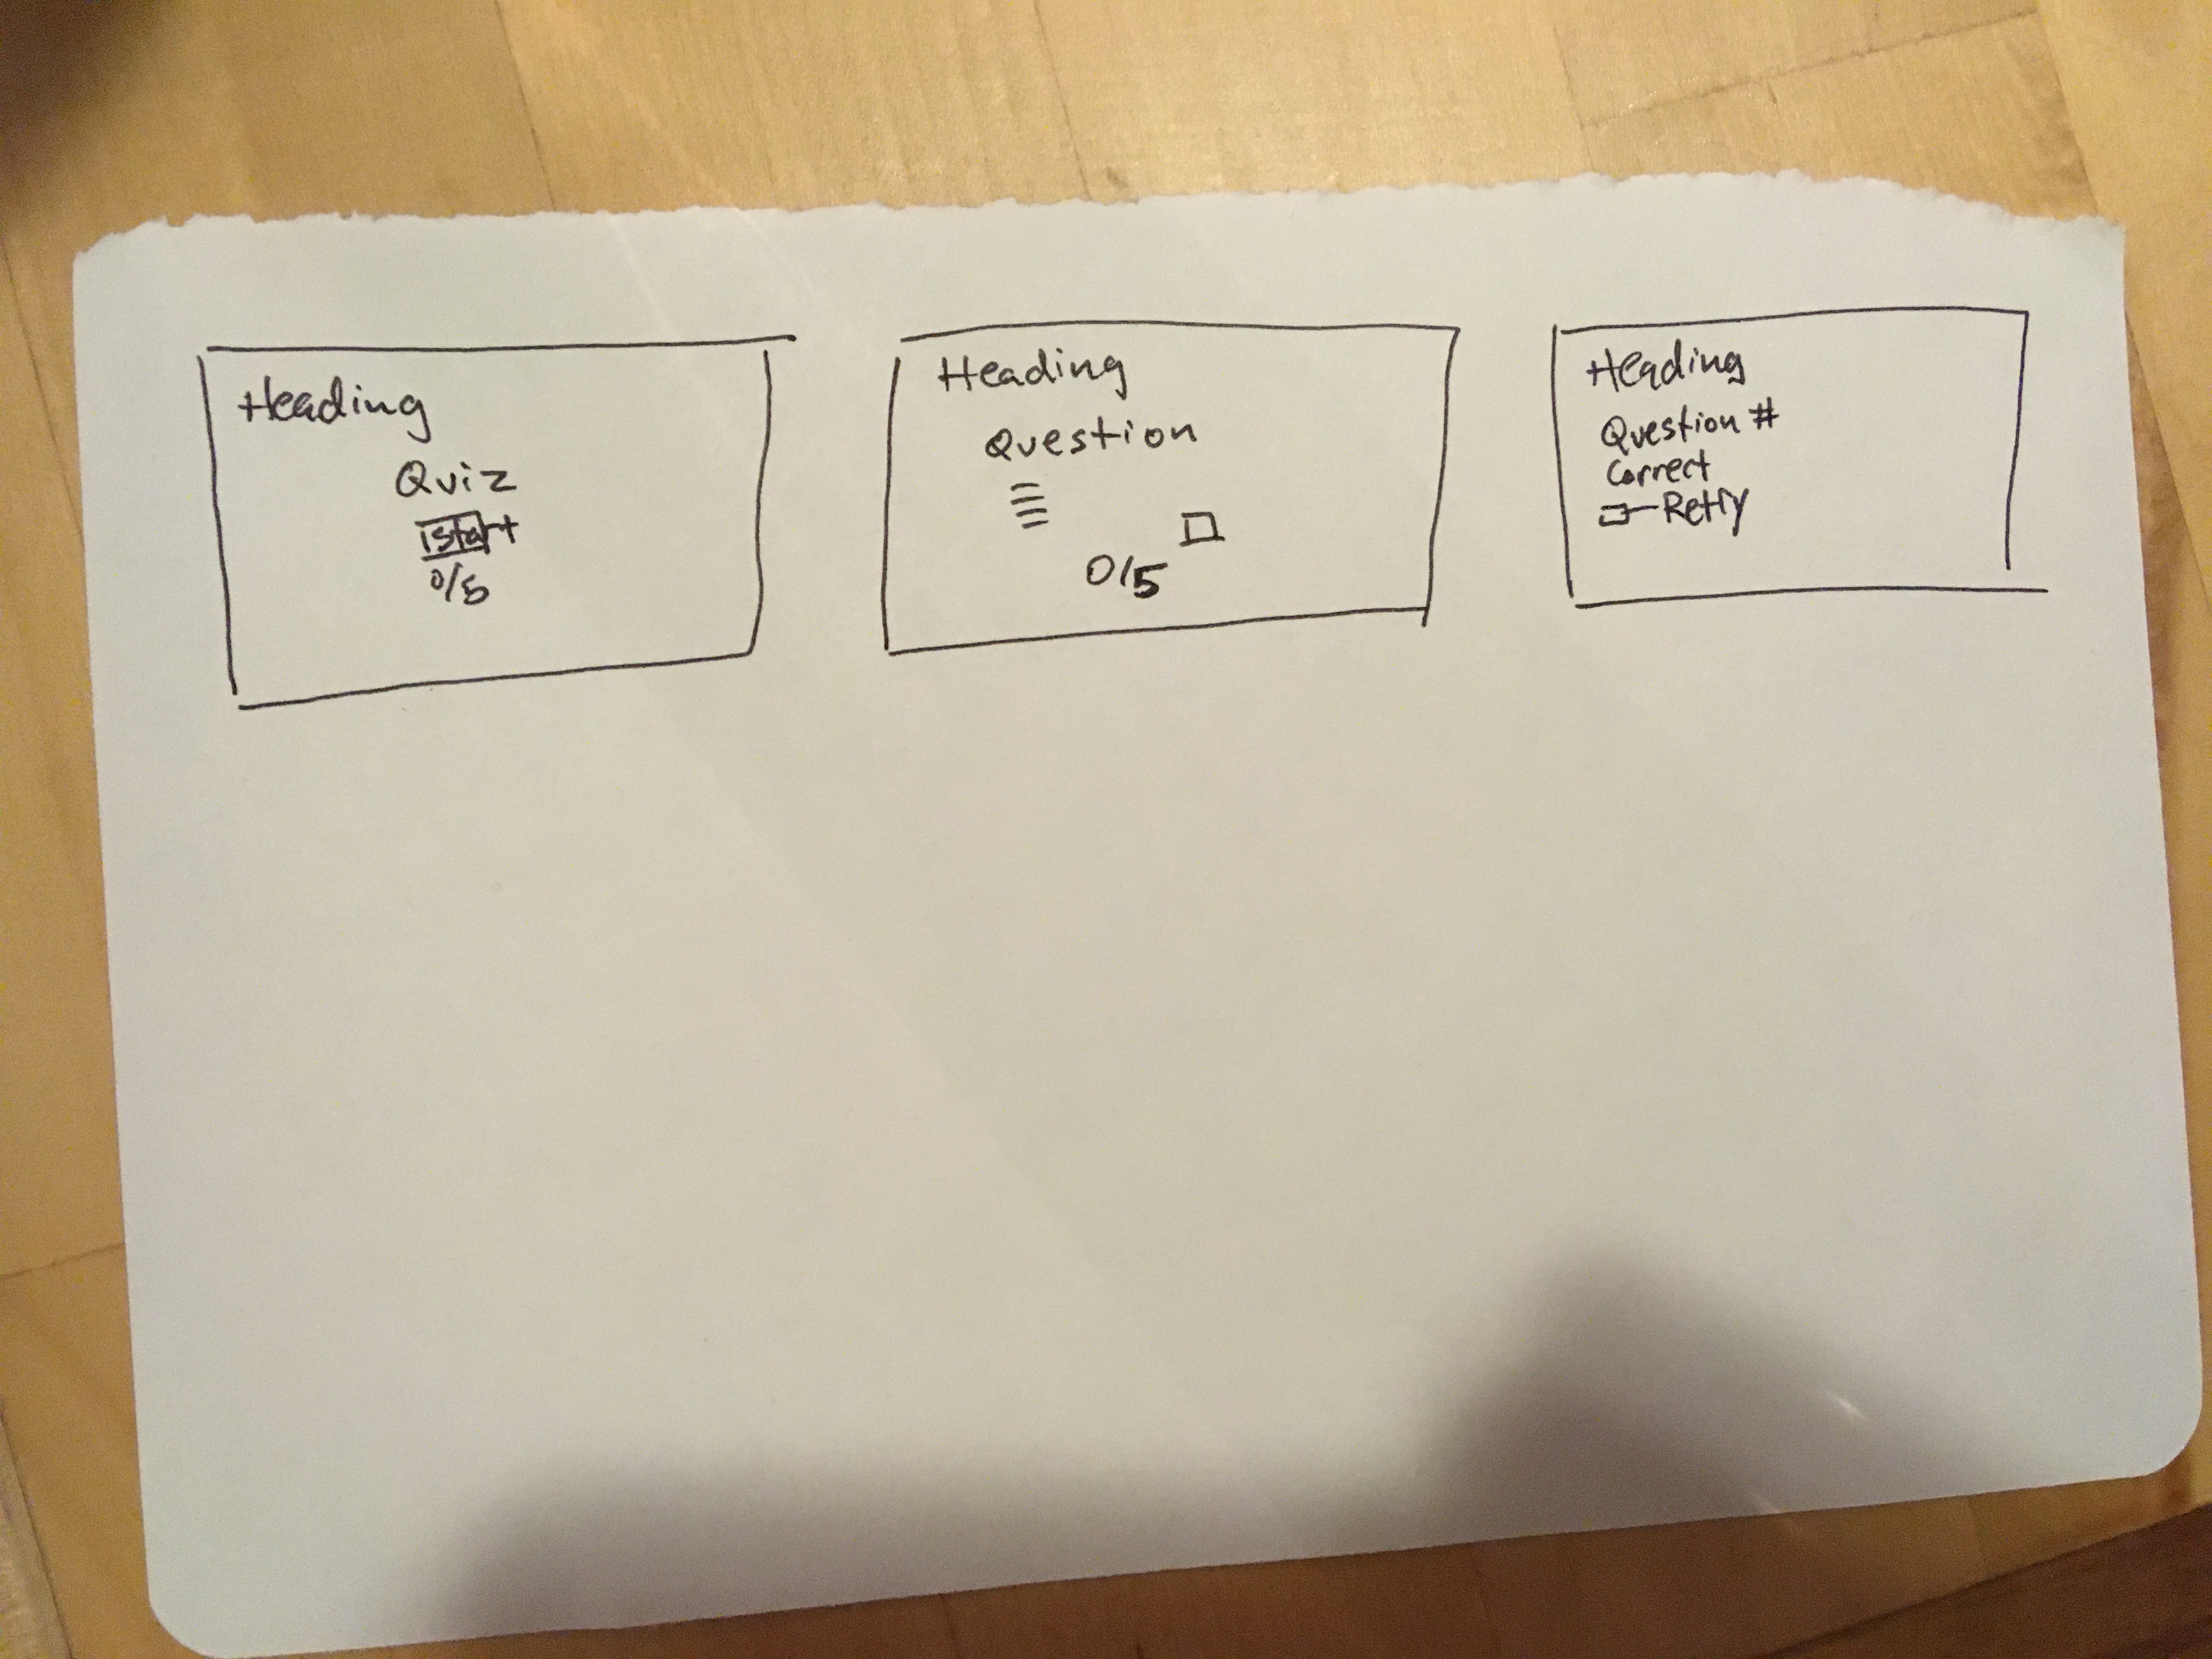 Heading
Quiz
Start
0/5
Heading
Question
0/5
Heading
Question #
Correct
Retry